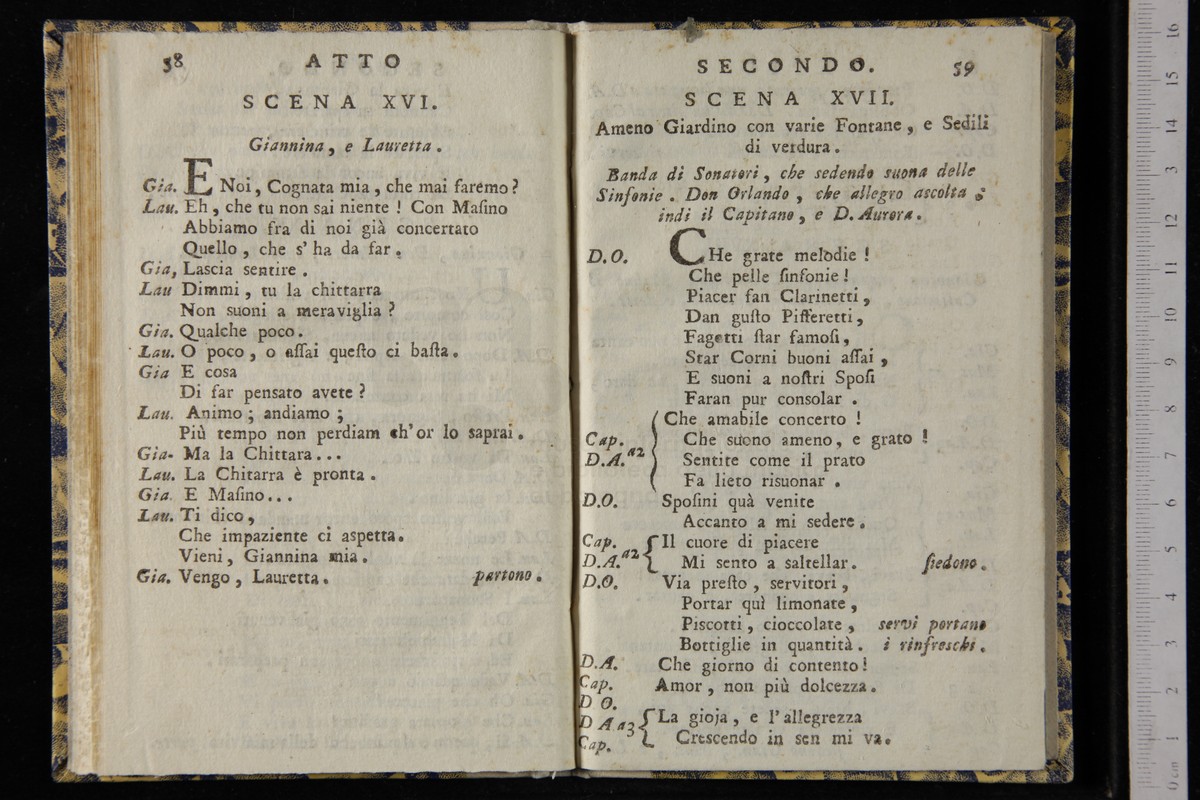 58 ATTO
SCENA XVI.
Giannina, e Lauretta.
Gia. E Noi, Cognata mia, che mai faremo?
Lau. Eh, che tu non sai niente! Con Maſino
Abbiamo fra di noi già concertato
Quello, che s' ha da far.
Gia, Lascia sentire.
Lau Dimmi, tu la chittarra
Non suoni a meraviglia?
Gia. Qualche poco.
Lau. O poco, o aſſai queſto ci baſta.
Gia E cosa
Di far pensato avete?
Lau. Animo; andiamo;
Più tempo non perdiam ch'or lo saprai.
Gia. Ma la Chittara...
Lau. La Chitarra è pronta.
Gia. E Maſino...
Lau. Ti dico,
Che impaziente ci aspetta.
Vieni, Giannina mia.
Gia. Vengo, Lauretta. partono.
SECONDO. 59
SCENA XVII.
Ameno Giardino con varie Fontane, e Sedili
di verdura.
Banda di Sonatori, che sedendo suona delle
Sinfonie. Don Orlando, che allegro ascolta;
indi il Capitano, e D. Aurora.
D.O. CHe grate melodie!
Che pelle ſinfonie!
Piacer fan Clarinetti,
Dan guſto Pifferetti,
Fagotti ſtar famoſi,
Star Corni buoni aſſai,
E suoni a noſtri Spoſi
Faran pur consolar.
Che amabile concerto!
Cap. Che suono ameno, e grato!
D.A. a2 Sentite come il prato
Fa lieto risuonar.
D.O. Spoſini quà venite
Accanto a mi sedere.
Cap. Il cuore di piacere
D.A. a2 Mi sento a saltellar. ſiedono.
D.O. Via preſto, servitori,
Portar quì limonate,
Piscotti, cioccolate, servi portano
Bottiglie in quantità. i rinfreschi.
D.A. Che giorno di contento!
Cap. Amor, non più dolcezza.
D O.
D A a3 La gioja, e l'allegrezza
Cap. Crescendo in sen mi va.
16
15
14
13
12
11
10
9
8
7
6
5
4
3
2
1
0 cm